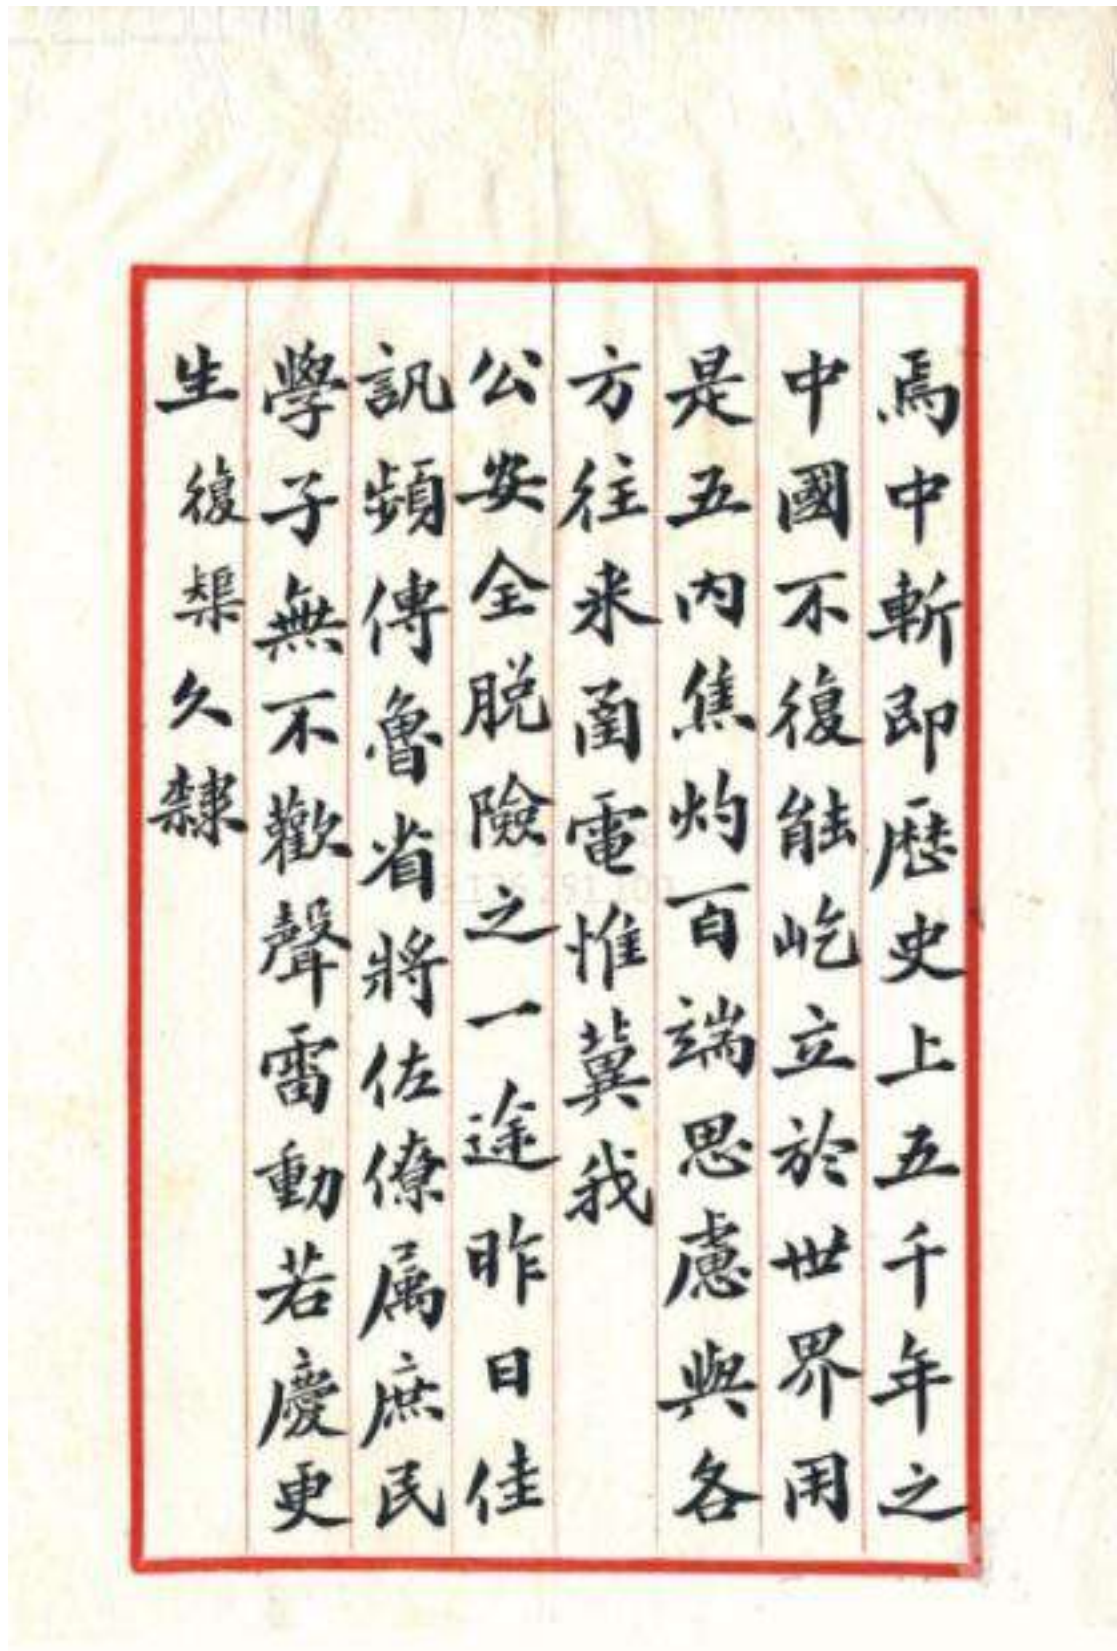 焉中斬即歷史上五千年之
中國不復能屹立於世界用
是五內焦灼百端思慮與各
方往來函電惟冀我
公安全脫險之一途昨日佳
訊頻傳魯省將佐僚属庶民
學子無不歡聲雷動若慶更
生復榘久隸